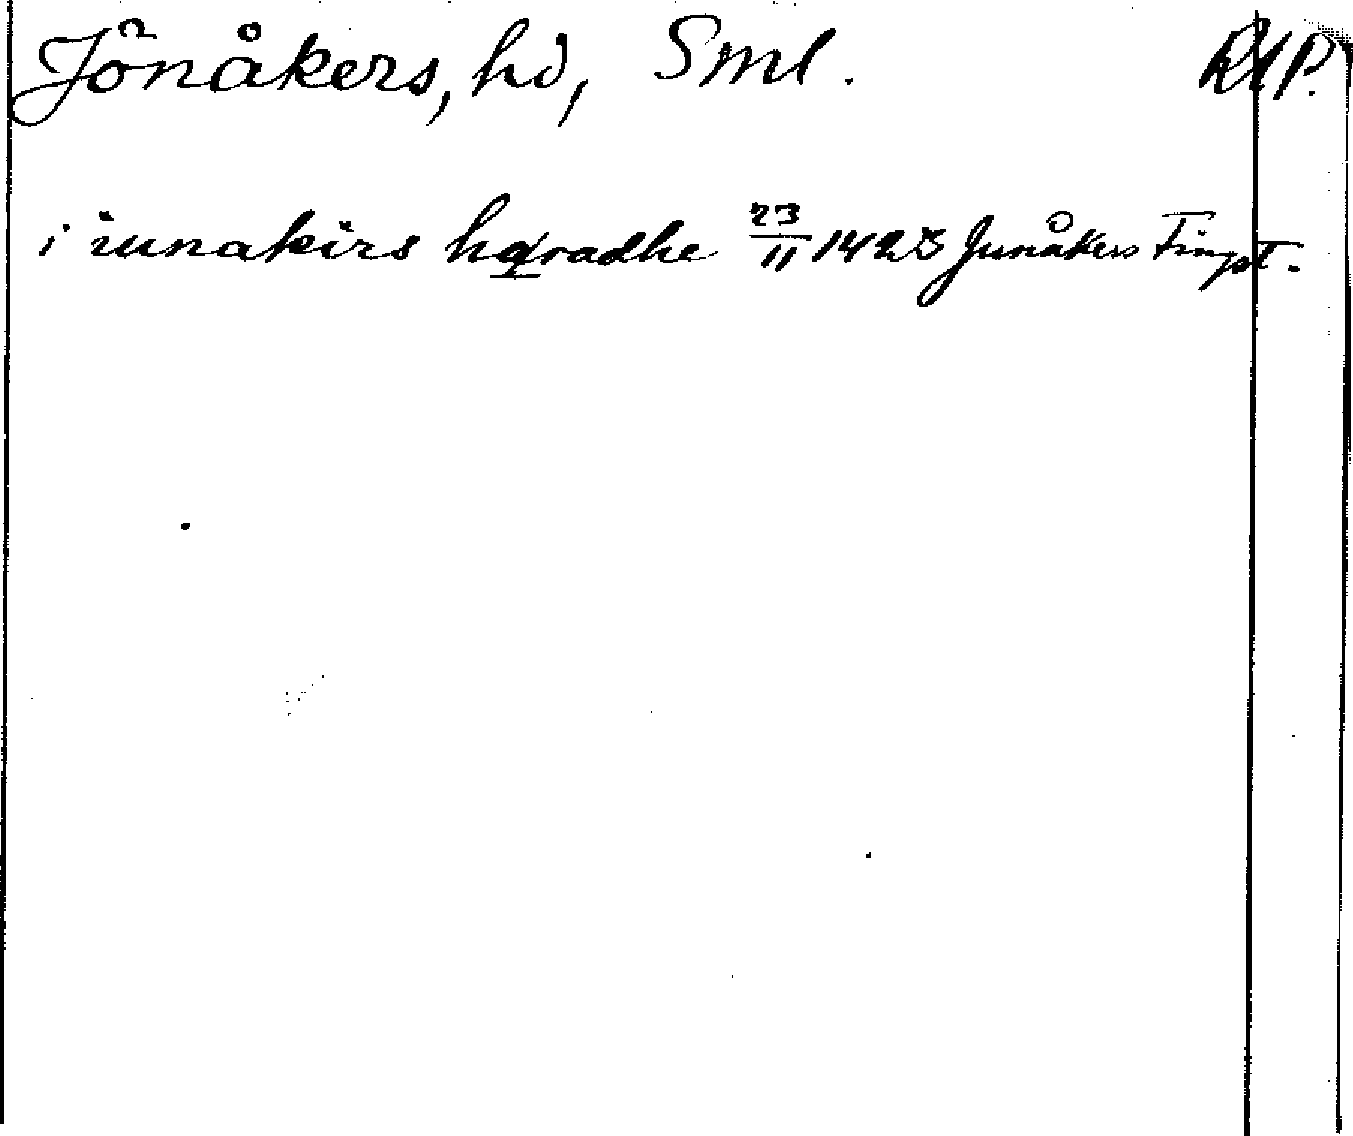 Jönåkers, hd, Sml. RAP.
i iunakirs hæradhe 23/11 1423 Junåkers Tingst.